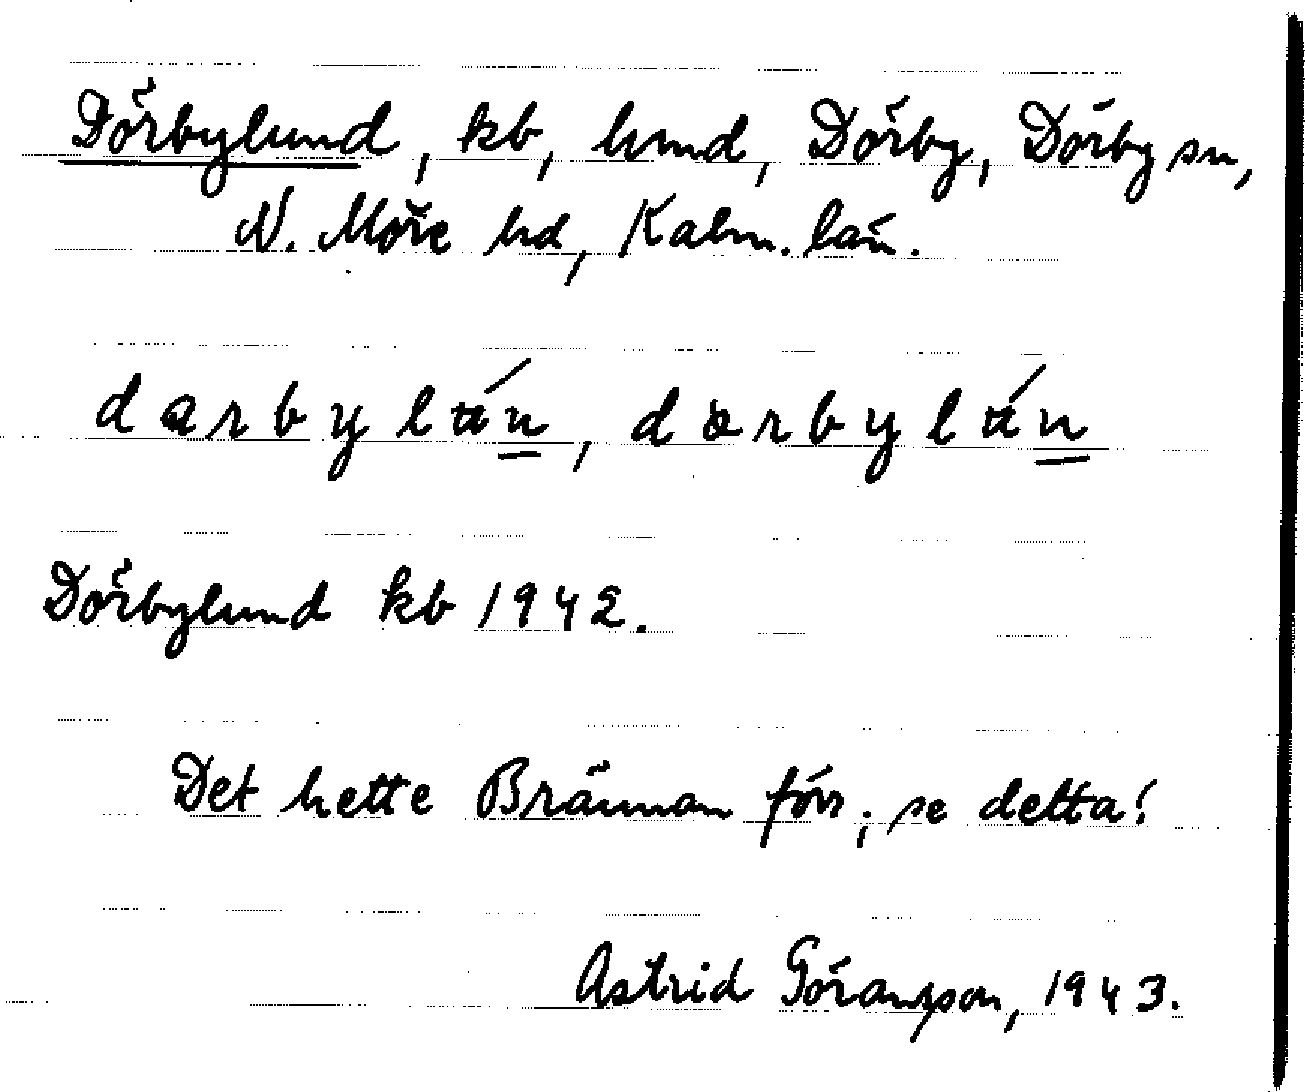 Dörbylund, kb, hmd, Dörby, Dörby sn,
N. Möre hd, Kalm. län.
dœrbylún, dœrbylún
Dörbylund kb 1942.
Det hette Brännan förr; se detta!
Astrid Göransson, 1943.